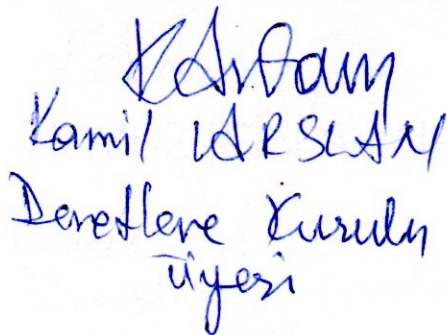 Kamil ARSLAN
Denetleme Kurulu
üyesi